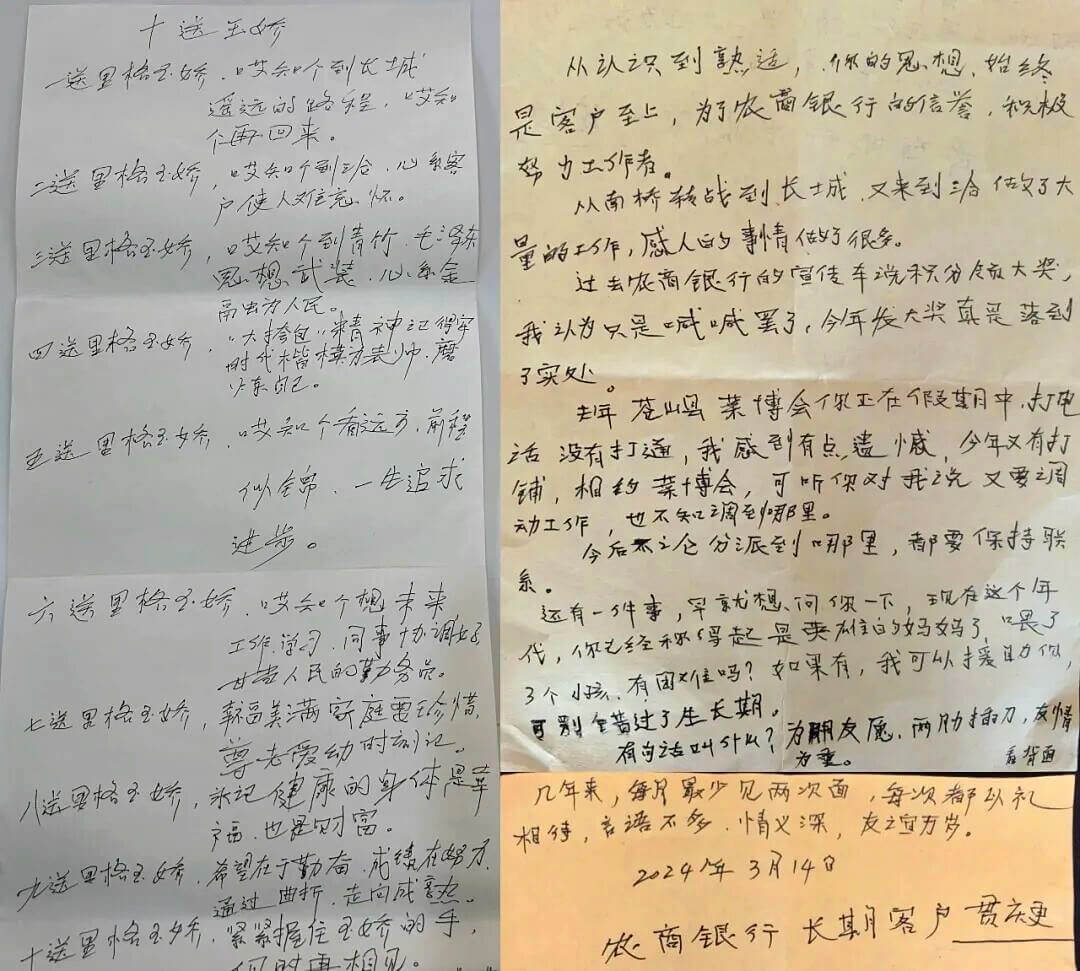 十送玉娇
一送里格玉娇，哎知个到长城
遥远的路程，哎知
个再回来。
二送里格玉娇，哎知个到三合，心系客
户使人难忘怀。
三送里格玉娇，哎知个到青竹，毛泽东
思想武装，心系金
融为人民。
四送里格玉娇，“大挎包”精神记得牢
时代楷模为表帅，磨
炼自己。
五送里格玉娇，哎知个看远方，前程
似锦，一生追求
进步。
六送里格玉娇，哎知个想未来
工作学习，同事协调好
甘当人民的勤务员。
七送里格玉娇，幸福美满家庭要珍惜，
尊老爱幼时刻记。
八送里格玉娇，永记健康的身体是幸
福，也是财富。
九送里格玉娇，希望在于勤奋，成绩在努力
通过曲折，走向成熟。
十送里格玉娇，紧紧握住玉娇的手，
何时再相见。
从认识到熟适，你的思想，始终
是客户至上，为了农商银行的信誉，积极
努力工作者。
从南桥转战到长城，又来到三合做了大
量的工作，感人的事情做了很多。
过去农商银行的宣传车说积分领大奖，
我认为只是喊喊罢了，今年发大奖真是落到
了实处。
去年苍山县菜博会你正在假期中，打电
话没有打通，我感到有点遗憾，今年又有打
铺，相约菜博会，可听你对我说又要调
动工作，也不知调到哪里。
今后不论分派到哪里，都要保持联
系。
还有一件事，早就想问你一下，现在这个年
代，你已经称得起是英雄的妈妈了，喂了
3个小孩，有困难吗？如果有，我可以援助你，
可别错过了生长期。
有句话叫什么？为朋友愿，两肋插刀，友情
为重。
看背面
几年来，每月最少见两次面，每次都以礼
相待，言语不多，情义深，友谊万岁。
2024年3月14日
农商银行长期客户 贯庆更